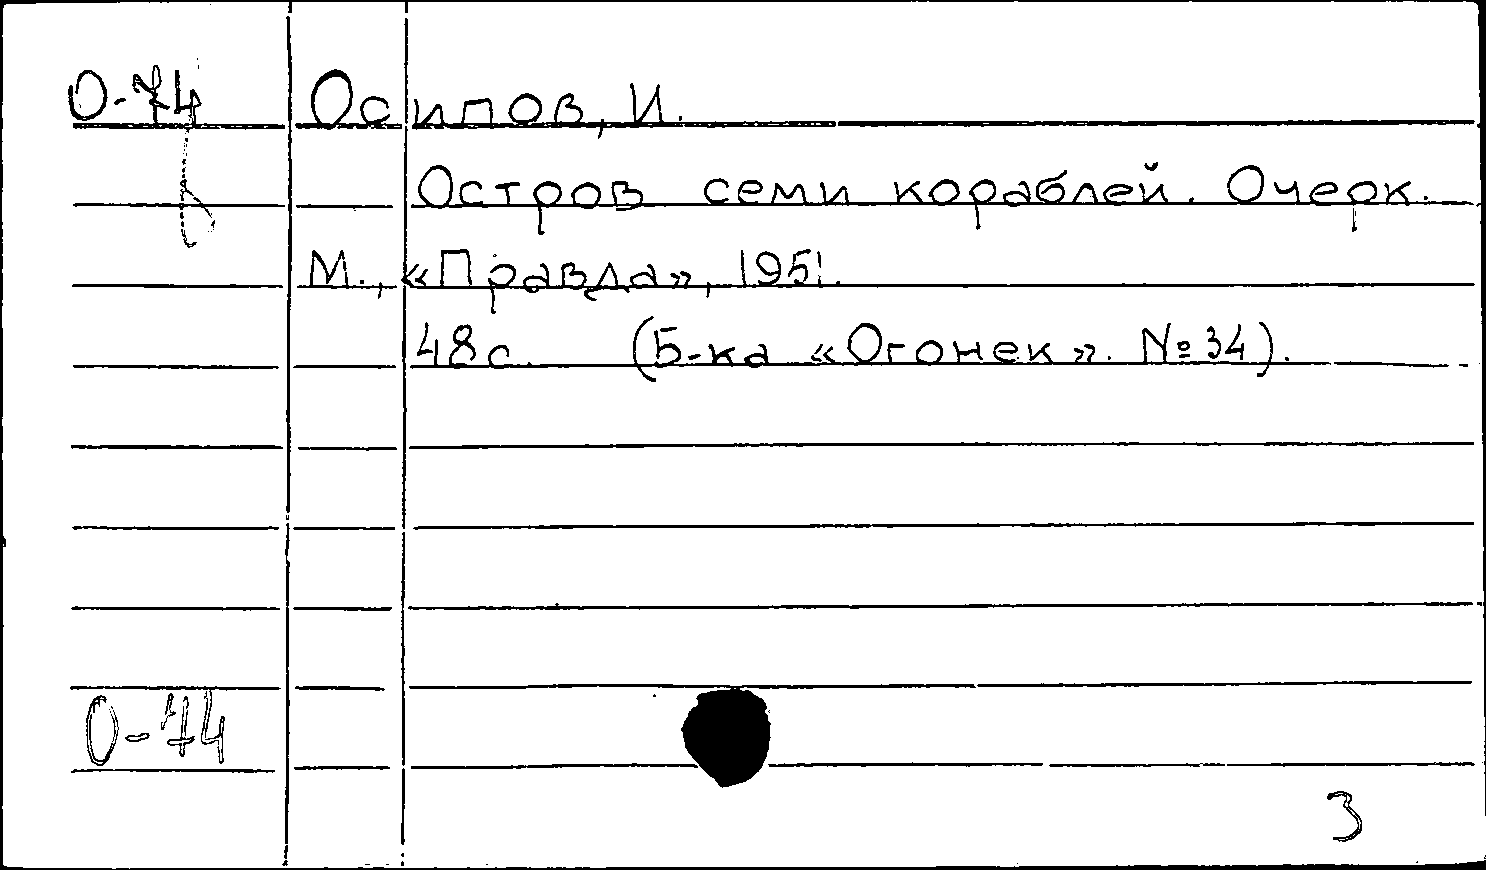 О-74 Осипов, И.
Остров семи кораблей. Очерк.
М., «Правда», 1951.
48с. (Б-ка «Огонек». № 34).
О-74
3